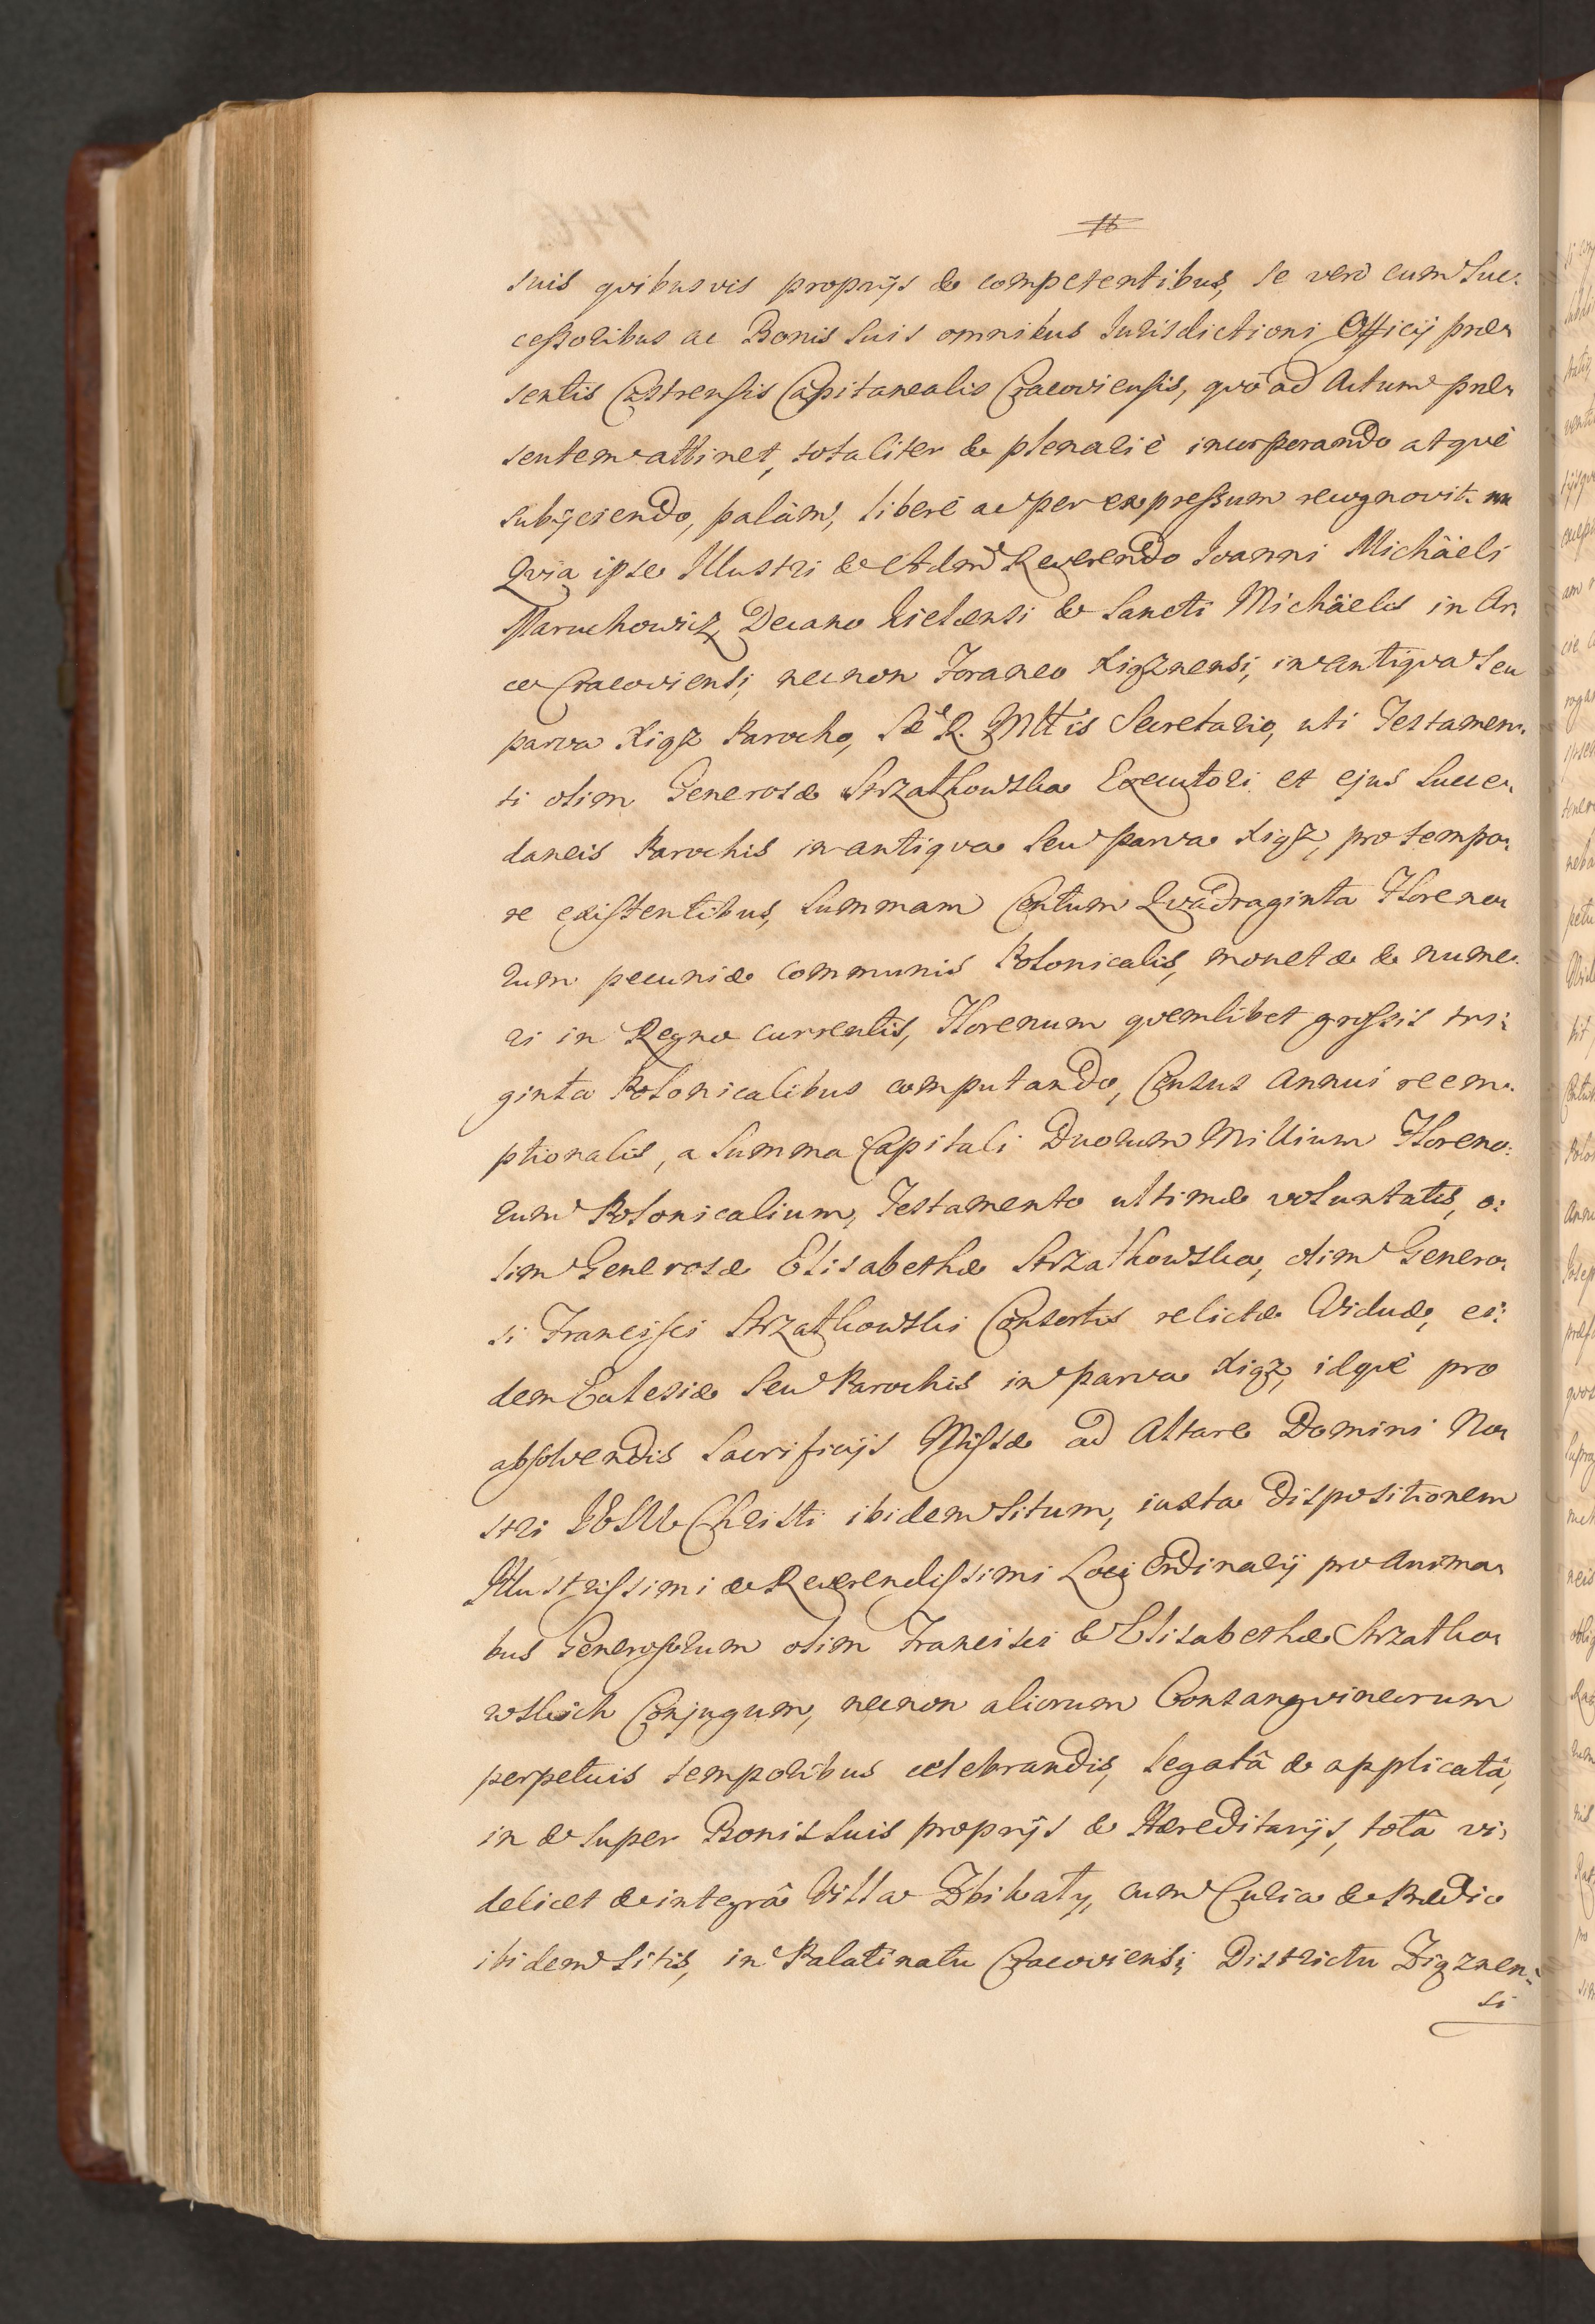 suis qvibusvis proprijs & competentibus, se verò cum Suc:
cessoribus ac Bonis suis omnibus Jurisdictioni Officij præ:
sentis Castrensis Capitanealis Cracoviensis, qvò ad Actum præ:
sentem attinet, totaliter & plenariè incorporando atqvè
subijciendo, palàm, liberè ac per expressum recognovit.
Qvia ipse Illustri & Adm Reverendo Joanni Michäeli
Maruchowicz, Decano Kielcensi & Sancti Michäelis in Ar:
ce Cracoviensi, necnon Foraneo Xigznensi, in antiqva seu
parva Xigz Parocho, Sæ R. Mttis Secretario, uti Testamen:
ti olim Generosæ Strzałkowska Executori et ejus Succe:
daneis Parochis in antiqva seu parva Xigz, pro tempo:
re existentibus, Summam Centum Qvadraginta Floreno:
rum pecuniæ communis Polonicalis, monetæ & nume:
ri in Regno currentis, Florenum qvemlibet grossis tri:
ginta Polonicalibus computando, Census Annui reem:
ptionalis, a Summa Capitali Duorum Millium Floreno:
rum Polonicalium, Testamento ultimæ voluntatis, o:
lim Generosæ Elisabethæ Strzałkowska, olim Genero:
si Francisci Strzałkowski Consortis relictæ Viduæ, eì:
dem Ecclesiæ seu Parochis in parva Xigz, idqvè pro
absolvendis Sacrificijs Missæ ad Altare Domini No:
stri JESU Christi ibidem situm, iuxta dispositionem
Illustrissimi & Reverendissimi Loci Ordinarij pro Anima:
bus Generosorum olim Francisci & Elisabethæ Strzałko:
wskich Conjugum, necnon aliorum Consangvineorum
perpetuis temporibus celebrandis, legatâ & applicatâ,
in & super Bonis suis proprijs & Hæreditarijs, totâ vi:
delicet & integrâ Villa Zbikaty, cum Curia & Prædio
ibidem sitis, in Palatinatu Cracoviensi, Districtu Xigznen:
si